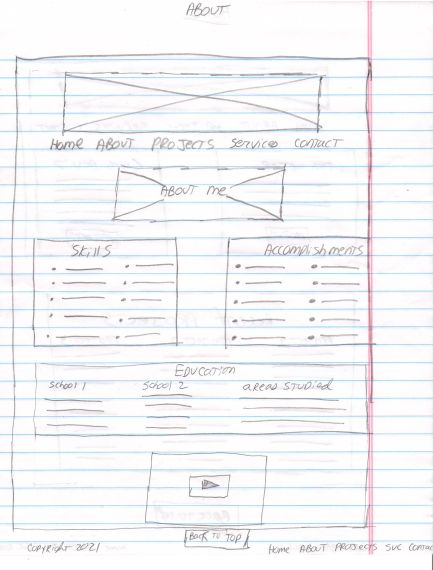 ABOUT
Home ABOUT PROJECTS Services CONTACT
ABOUT me
Skills
Accomplishments
EDUCATION
School 1 School 2 areas STUDied
BACK TO TOP
COPYRIGHT 2021
Home ABOUT PROJECTS SVC Contac